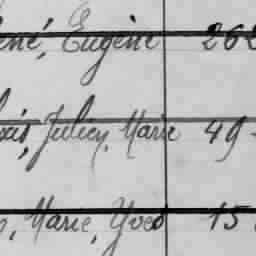 Eugène 262
Julien, Marie 49
Marie, Yves 15